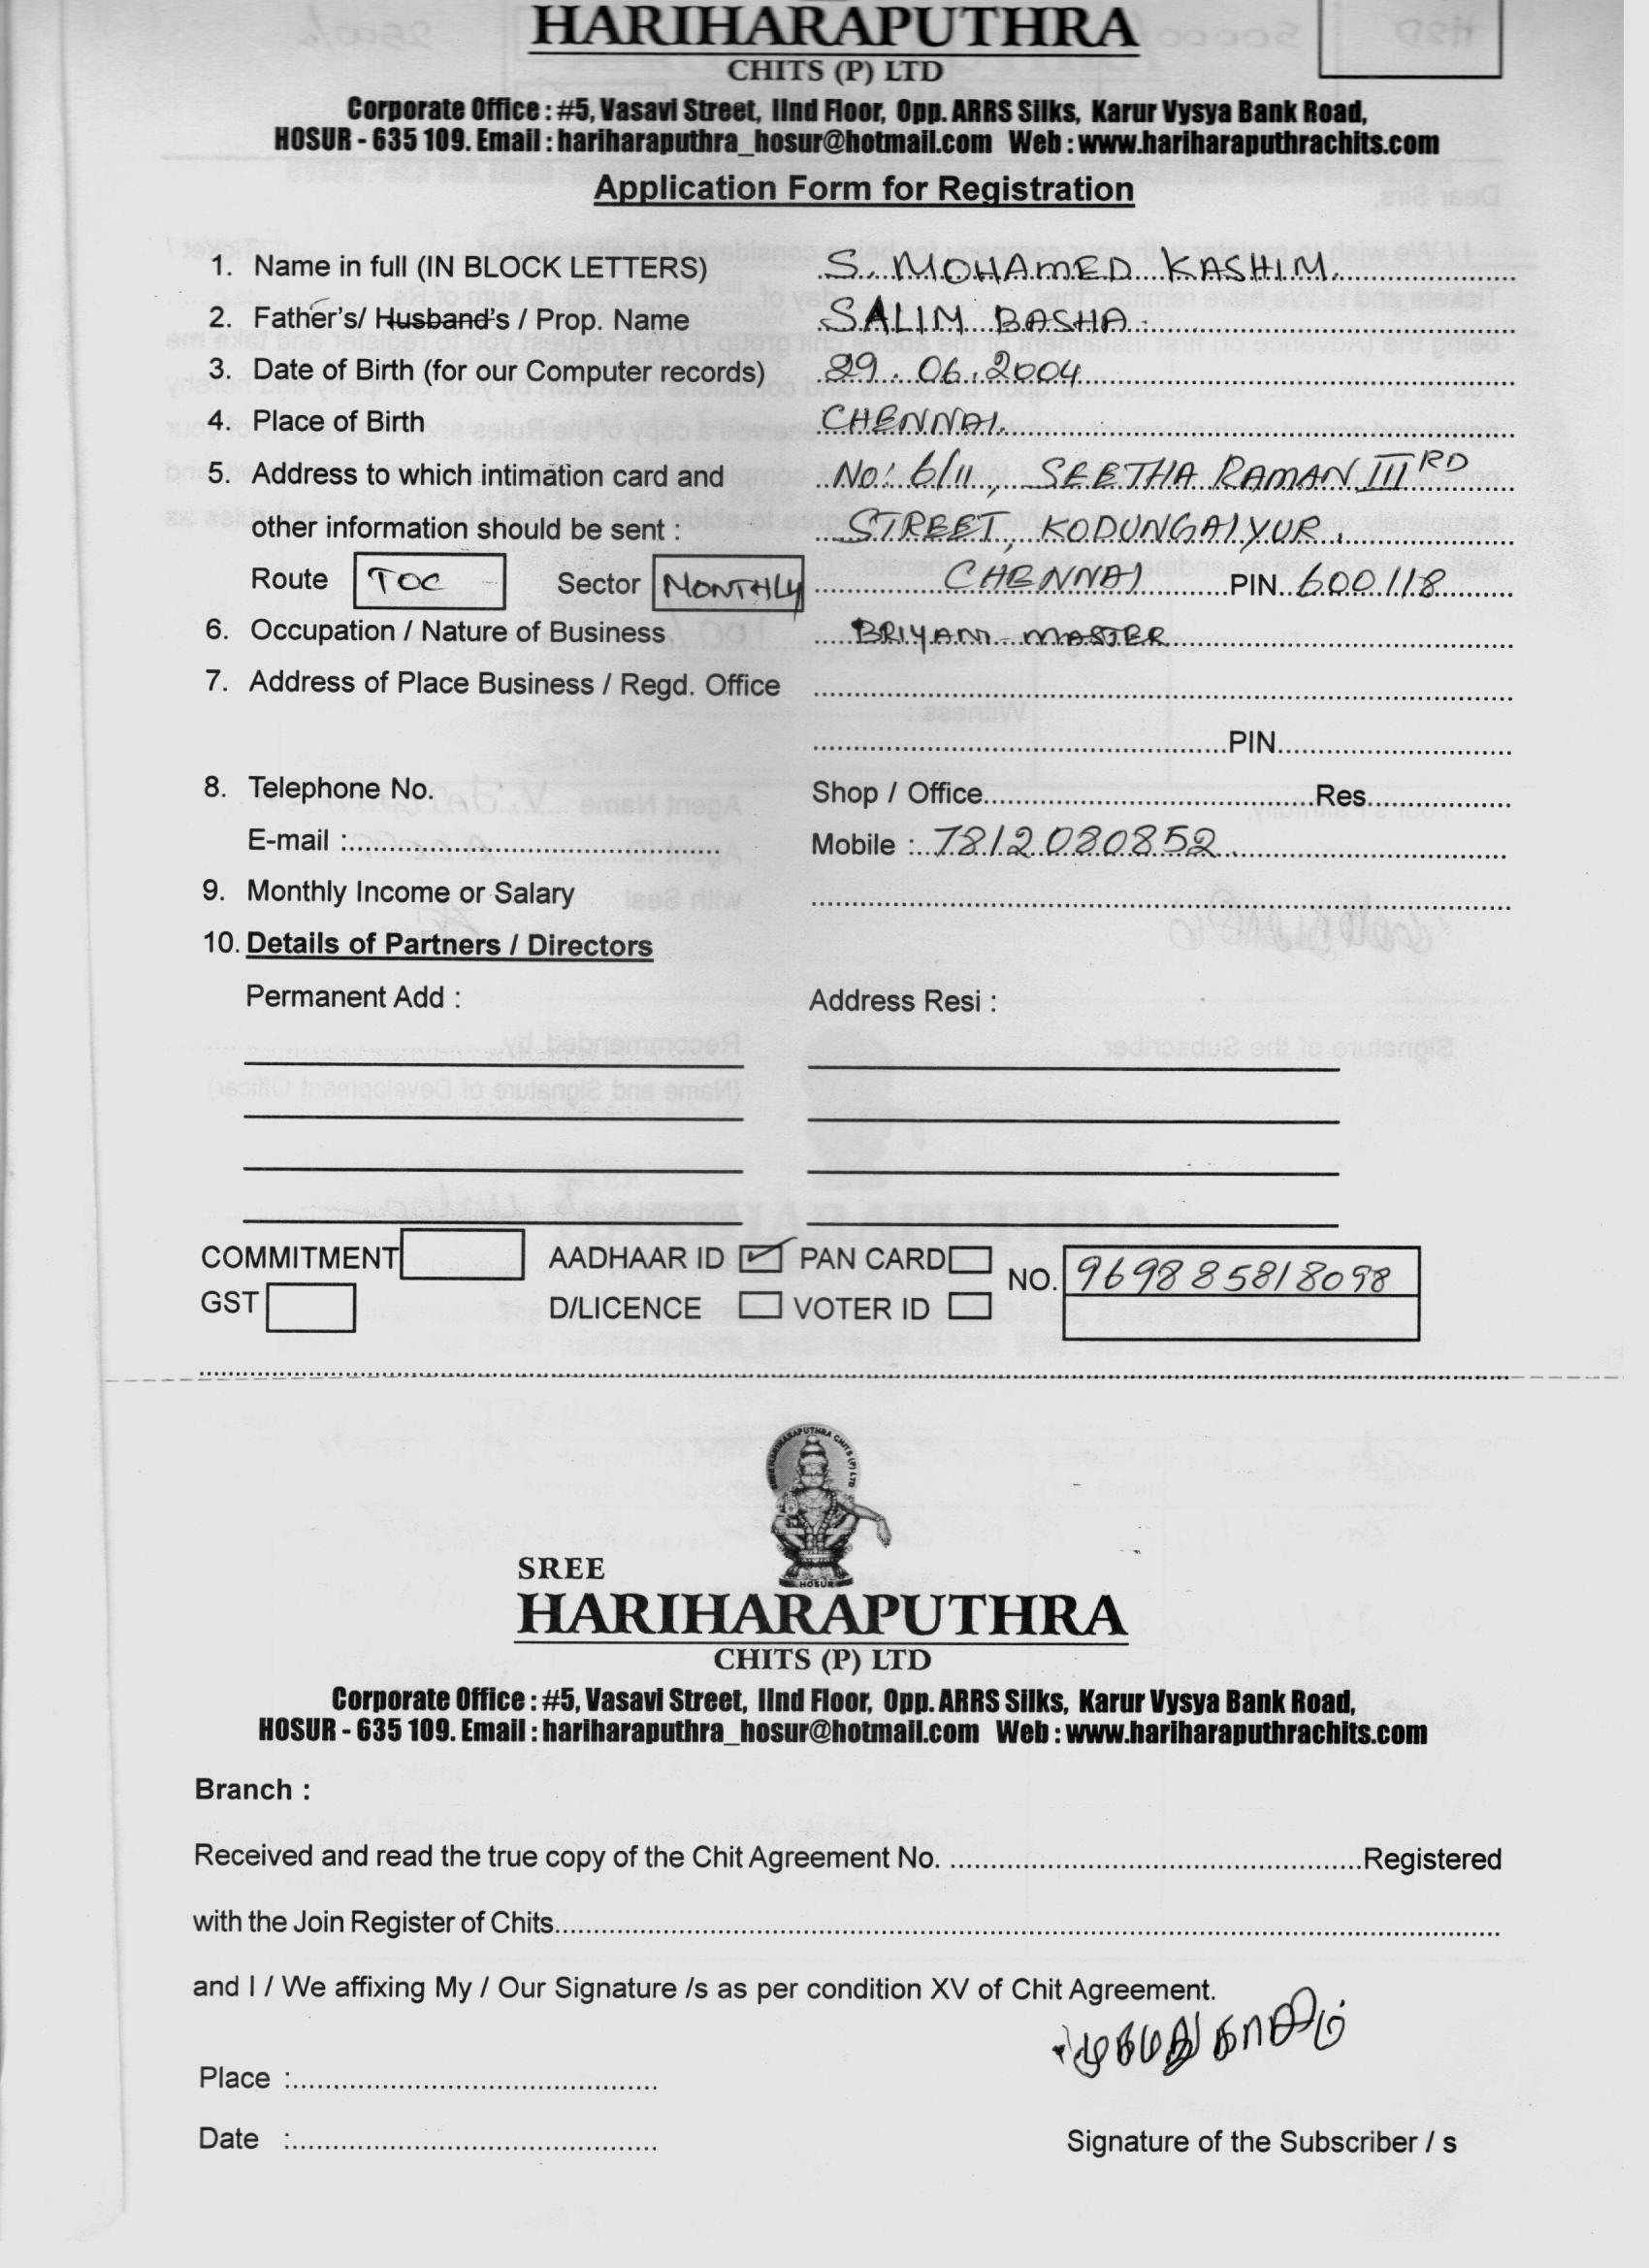 HARIHARAPUTHRA
CHITS (P) LTD
Corporate Office : #5, Vasavi Street, IInd Floor, Opp. ARRS Silks, Karur Vysya Bank Road,
HOSUR - 635 109. Email : hariharaputhra_hosur@hotmail.com Web : www.hariharaputhrachits.com
Application Form for Registration
1. Name in full (IN BLOCK LETTERS) S. MOHAMED KASHIM.
2. Father's/ Husband's / Prop. Name SALIM BASHA.
3. Date of Birth (for our Computer records) 29.06.2004
4. Place of Birth CHENNAI.
5. Address to which intimation card and No: 6/11, SEETHA RAMAN III RD
other information should be sent : STREET, KODUNGAIYUR,
Route TOC Sector MONTHLY CHENNAI PIN 600118
6. Occupation / Nature of Business BRIYANI MASTER
7. Address of Place Business / Regd. Office
PIN
8. Telephone No. Shop / Office Res
E-mail : Mobile : 7812080852.
9. Monthly Income or Salary
10. Details of Partners / Directors
Permanent Add : Address Resi :
COMMITMENT AADHAAR ID PAN CARD NO. 969885818098
GST D/LICENCE VOTER ID
SREE HARIHARAPUTHRA CHITS (P) LTD
HOSUR
SREE
HARIHARAPUTHRA
CHITS (P) LTD
Corporate Office : #5, Vasavi Street, IInd Floor, Opp. ARRS Silks, Karur Vysya Bank Road,
HOSUR - 635 109. Email : hariharaputhra_hosur@hotmail.com Web : www.hariharaputhrachits.com
Branch :
Received and read the true copy of the Chit Agreement No. Registered
with the Join Register of Chits
and I / We affixing My / Our Signature /s as per condition XV of Chit Agreement.
Place :
Date :
Signature of the Subscriber / s